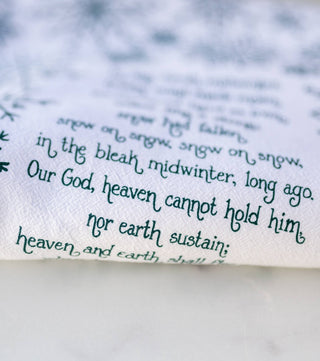 snow had fallen,
snow on snow, snow on snow,
in the bleak midwinter, long ago.
Our God, heaven cannot hold him,
nor earth sustain;
heaven and earth shall